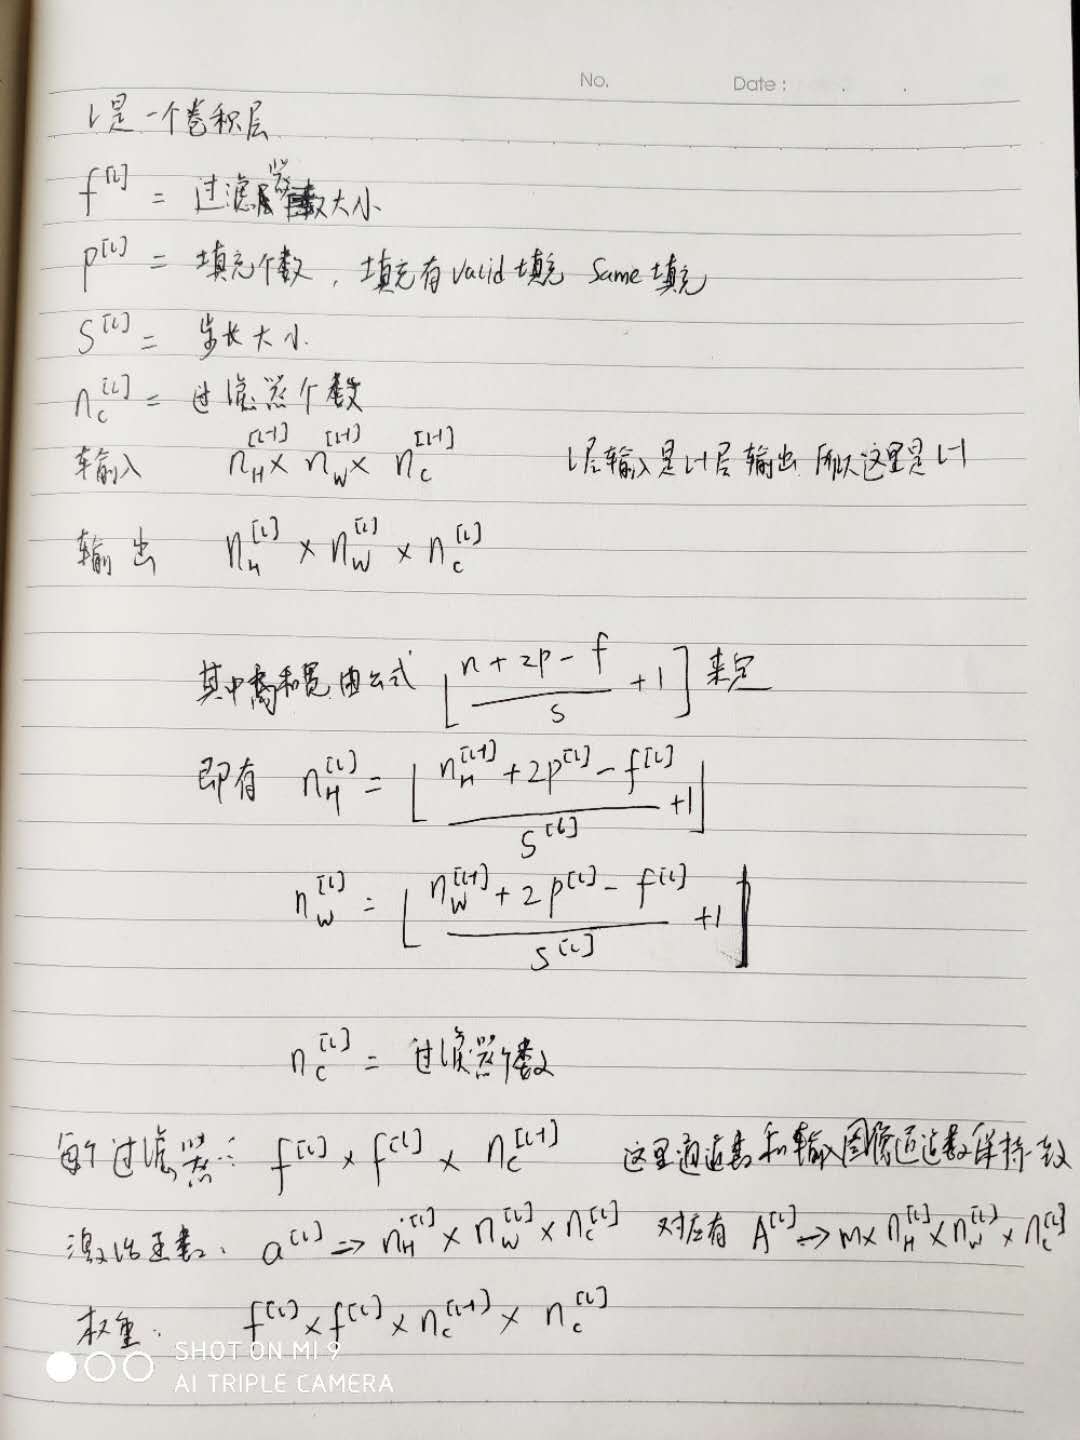 No. Date :
l是一个卷积层
f^[l] = 过滤器大小
p^[l] = 填充个数，填充有valid填充 Same填充
S^[l] = 步长大小.
n_c^[l] = 过滤器个数
输入 n_H^[l-1] × n_W^[l-1] × n_c^[l-1] l层输入是l-1层输出 所以这里是l-1
输出 n_H^[l] × n_W^[l] × n_c^[l]
其中高和宽由公式 ⌊(n + 2p - f)/s + 1⌋ 来定
即有 n_H^[l] = ⌊(n_H^[l-1] + 2p^[l] - f^[l])/S^[l] + 1⌋
n_W^[l] = ⌊(n_W^[l-1] + 2p^[l] - f^[l])/S^[l] + 1⌋
n_c^[l] = 过滤器个数
每个过滤器: f^[l] × f^[l] × n_c^[l-1] 这里通道数和输入图像通道数保持一致
激活函数: a^[l] → n_H^[l] × n_W^[l] × n_c^[l] 对应有 A^[l] → m × n_H^[l] × n_W^[l] × n_c^[l]
权重: f^[l] × f^[l] × n_c^[l-1] × n_c^[l]
SHOT ON MI 9
AI TRIPLE CAMERA